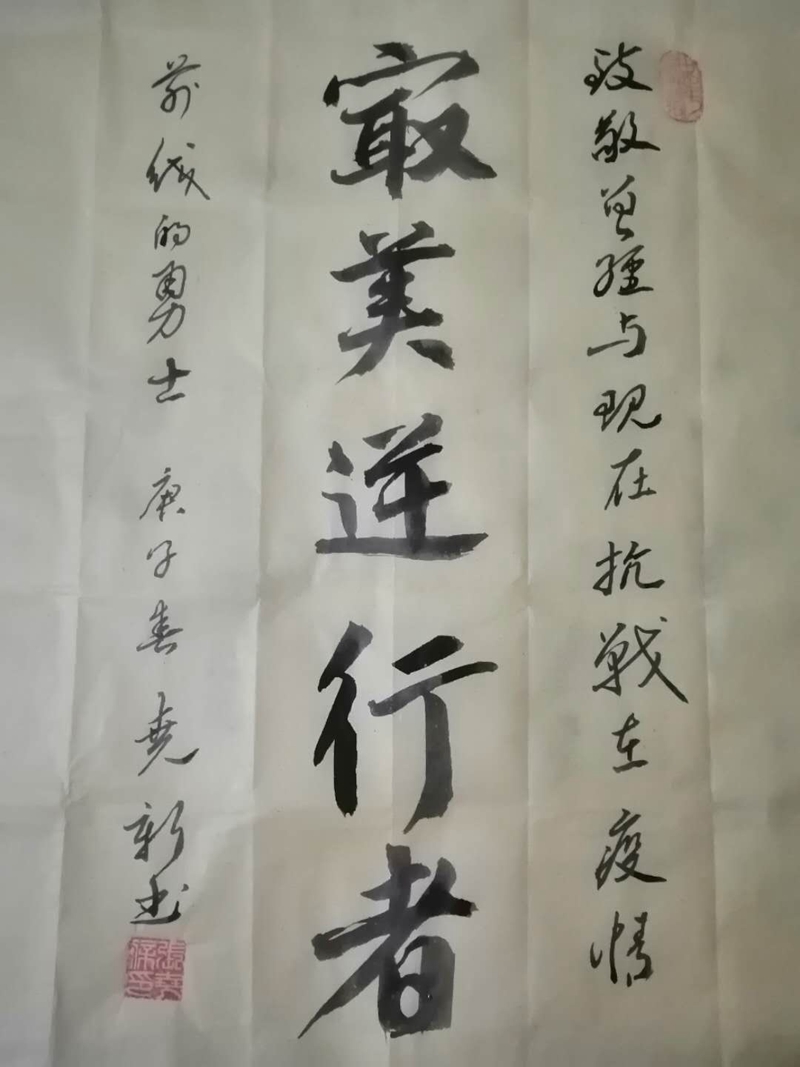 致敬曾經与现在抗戰在疫情
最美逆行者
前线的勇士 庚子春 尧新书